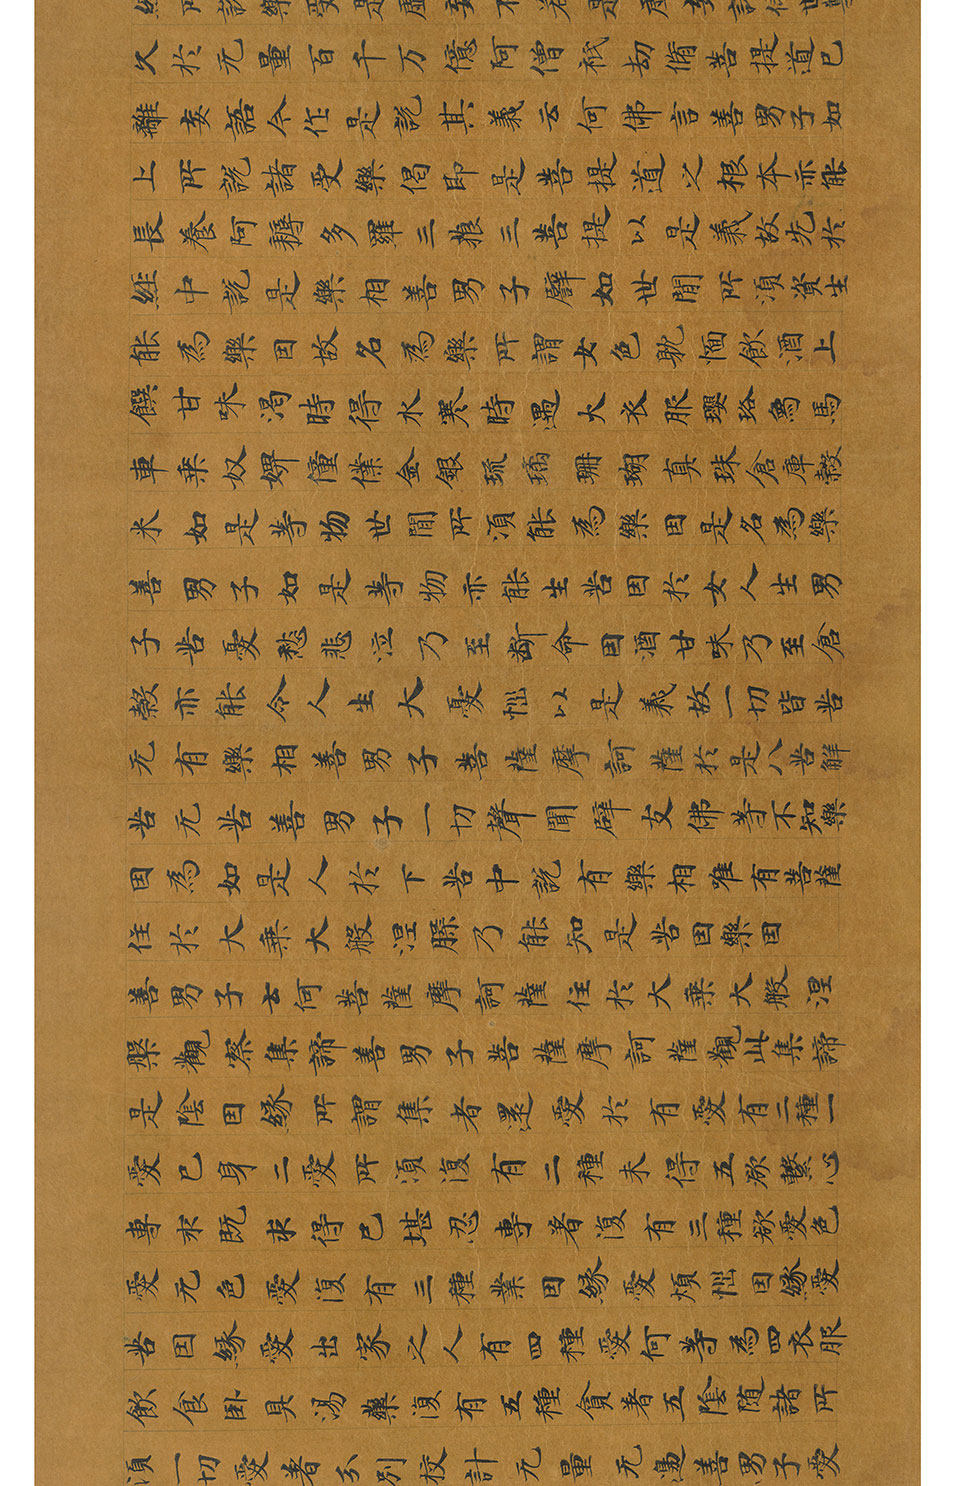 所說樂受是虛妄不若是虛妄諸佛世尊
久於无量百千万億阿僧祇劫脩菩提道已
離妄語今作是說其義云何佛言善男子如
上所說諸受樂偈即是菩提道之根本亦能
長養阿耨多羅三藐三菩提以是義故先於
經中說是樂相善男子譬如世間所須資生
能為樂因故名為樂所謂女色躭湎飲酒上
饌甘味渴時得水寒時遇火衣服瓔珞象馬
車乗奴婢僮僕金銀琉璃珊瑚真珠倉庫穀
米如是等物世間所須能為樂因是名為樂
善男子如是等物亦能生苦因於女人生男
子苦憂愁悲泣乃至斷命因酒甘味乃至倉
穀亦能令人生大憂惱以是義故一切皆苦
无有樂相善男子菩薩摩訶薩於是八苦解
苦无苦善男子一切聲聞辟支佛等不知樂
因為如是人於下苦中說有樂相唯有菩薩
住於大乗大般涅槃乃能知是苦因樂因
善男子云何菩薩摩訶薩住於大乗大般涅
槃觀察集諦善男子菩薩摩訶薩觀此集諦
是陰因緣所謂集者還愛於有愛有二種一
愛已身二愛所須復有二種未得五欲繫心
專求既求得已堪忍專著復有三種欲愛色
愛无色愛復有三種業因緣愛煩惱因緣愛
苦因緣愛出家之人有四種愛何等為四衣服
飲食卧具湯藥復有五種貪著五陰隨諸所
須一切愛著分別校計无量无邊善男子愛